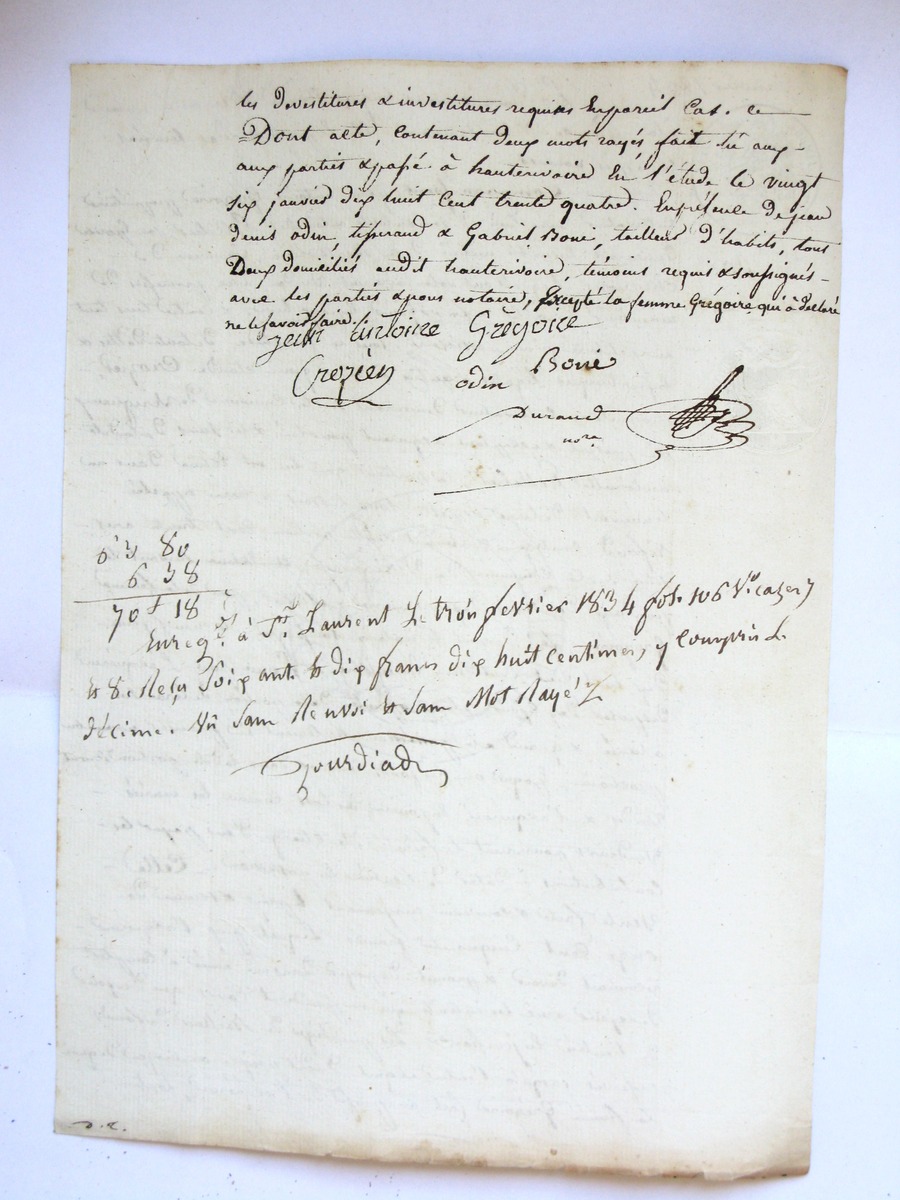 les devestitures & investitures requises En pareil Cas. ce
Dont acte, Contenant deux mots rayés fait lu aux
aux parties & passé à hauterivoire En l'étude le vingt
six janvier dix huit Cent trente quatre. En présence de jean
denis odin, tisserand & Gabriel Boni, tailleur d'habits, tous
Deux domiciliés audit hauterivoire, témoins requis & soussignés
avec les parties & nous notaire, Excepté la femme Grégoire, qui à déclaré
ne le savoir faire.
Jean Antoine Grégoire
Crozier odin Boni
Durand
nore
63 80
6 38
70 f 18 c
Enregé. à St. Laurent Le trois fevrier 1834 fol. 106 Vo. cazes 7
et 8. Reçu Soixante et dix francs dix huit centimes, y Compris le
décime. Vû Sans Renvoi et Sans Mot Rayé